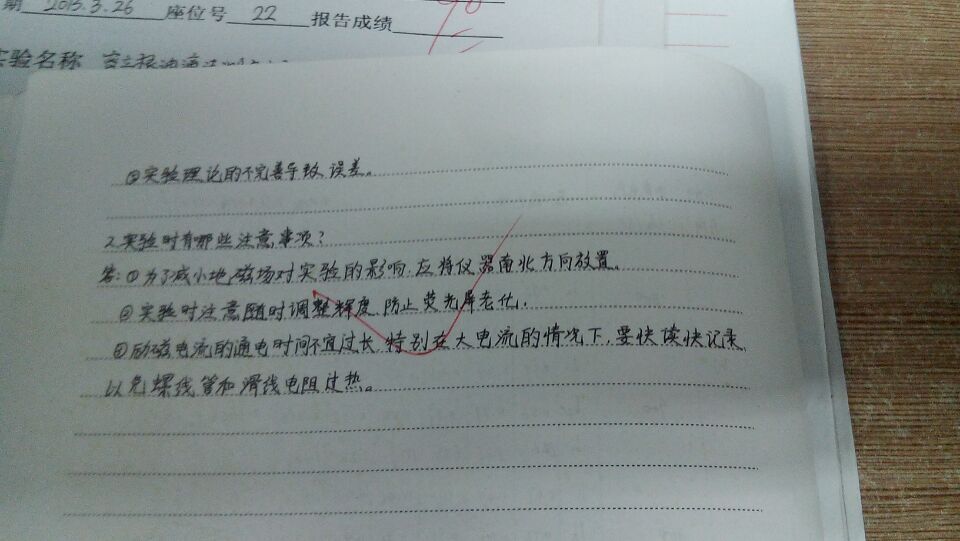 期 2015.3.26 座位号 22 报告成绩
实验名称
②实验理论的不完善导致误差。
2.实验时有哪些注意事项?
答:①为了减小地磁场对实验的影响,应将仪器南北方向放置。
②实验时注意随时调整辉度,防止荧光屏老化。
③励磁电流的通电时间不宜过长,特别在大电流的情况下,要快读快记录,
以免螺线管和滑线电阻过热。